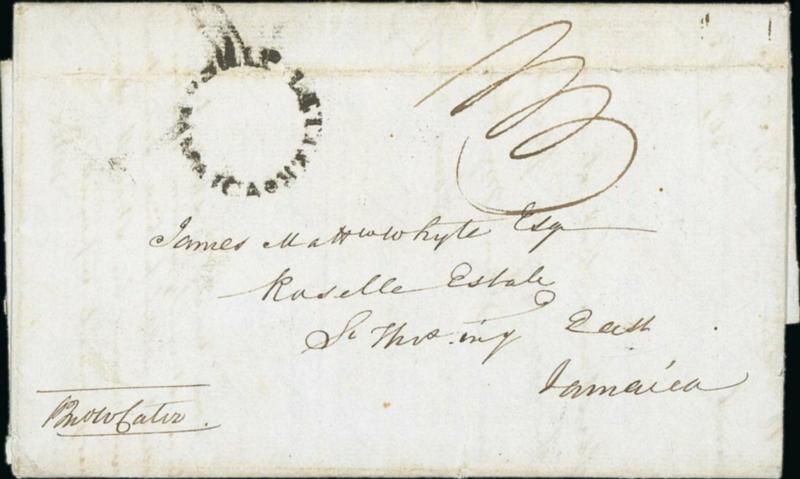 SHIP LETTER
JAMAICA
James Mattw Whyte Esq
Roselle Estate
St Thos. in ye East
Jamaica